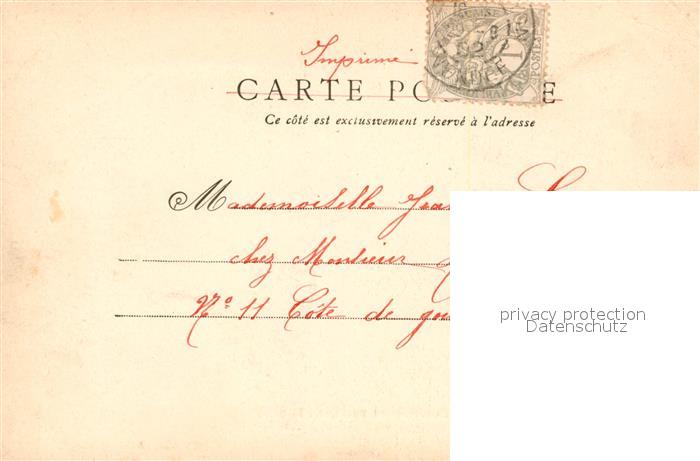 Imprimé
CARTE PO E
Ce côté est exclusivement réservé à l'adresse
Mademoiselle
chez Monsieur
N° 11 Côte de
privacy protection
Datenschutz